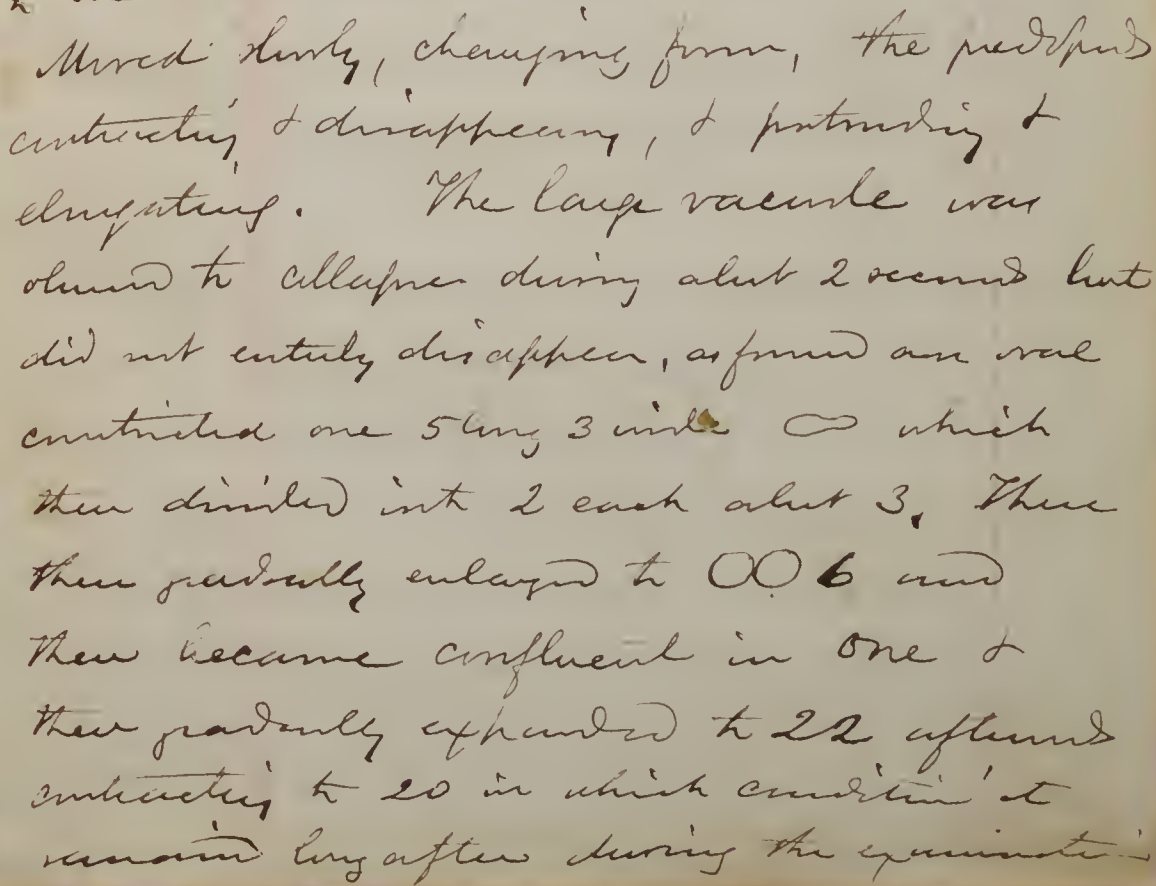 Moved slowly, changing form, the pseudopods
contracting & disappearing, & protruding &
elongating. The large vacuole was
observed to collapse during about 2 seconds but
did not entirely disappear, as formed an oval
constricted one 5 long 3 wide which
then divided into 2 each about 3. These
then gradually enlarged to 6 and
then became confluent in one &
then gradually expanded to 22 afterwards
contracting to 20 in which condition it
remained long after during the examination